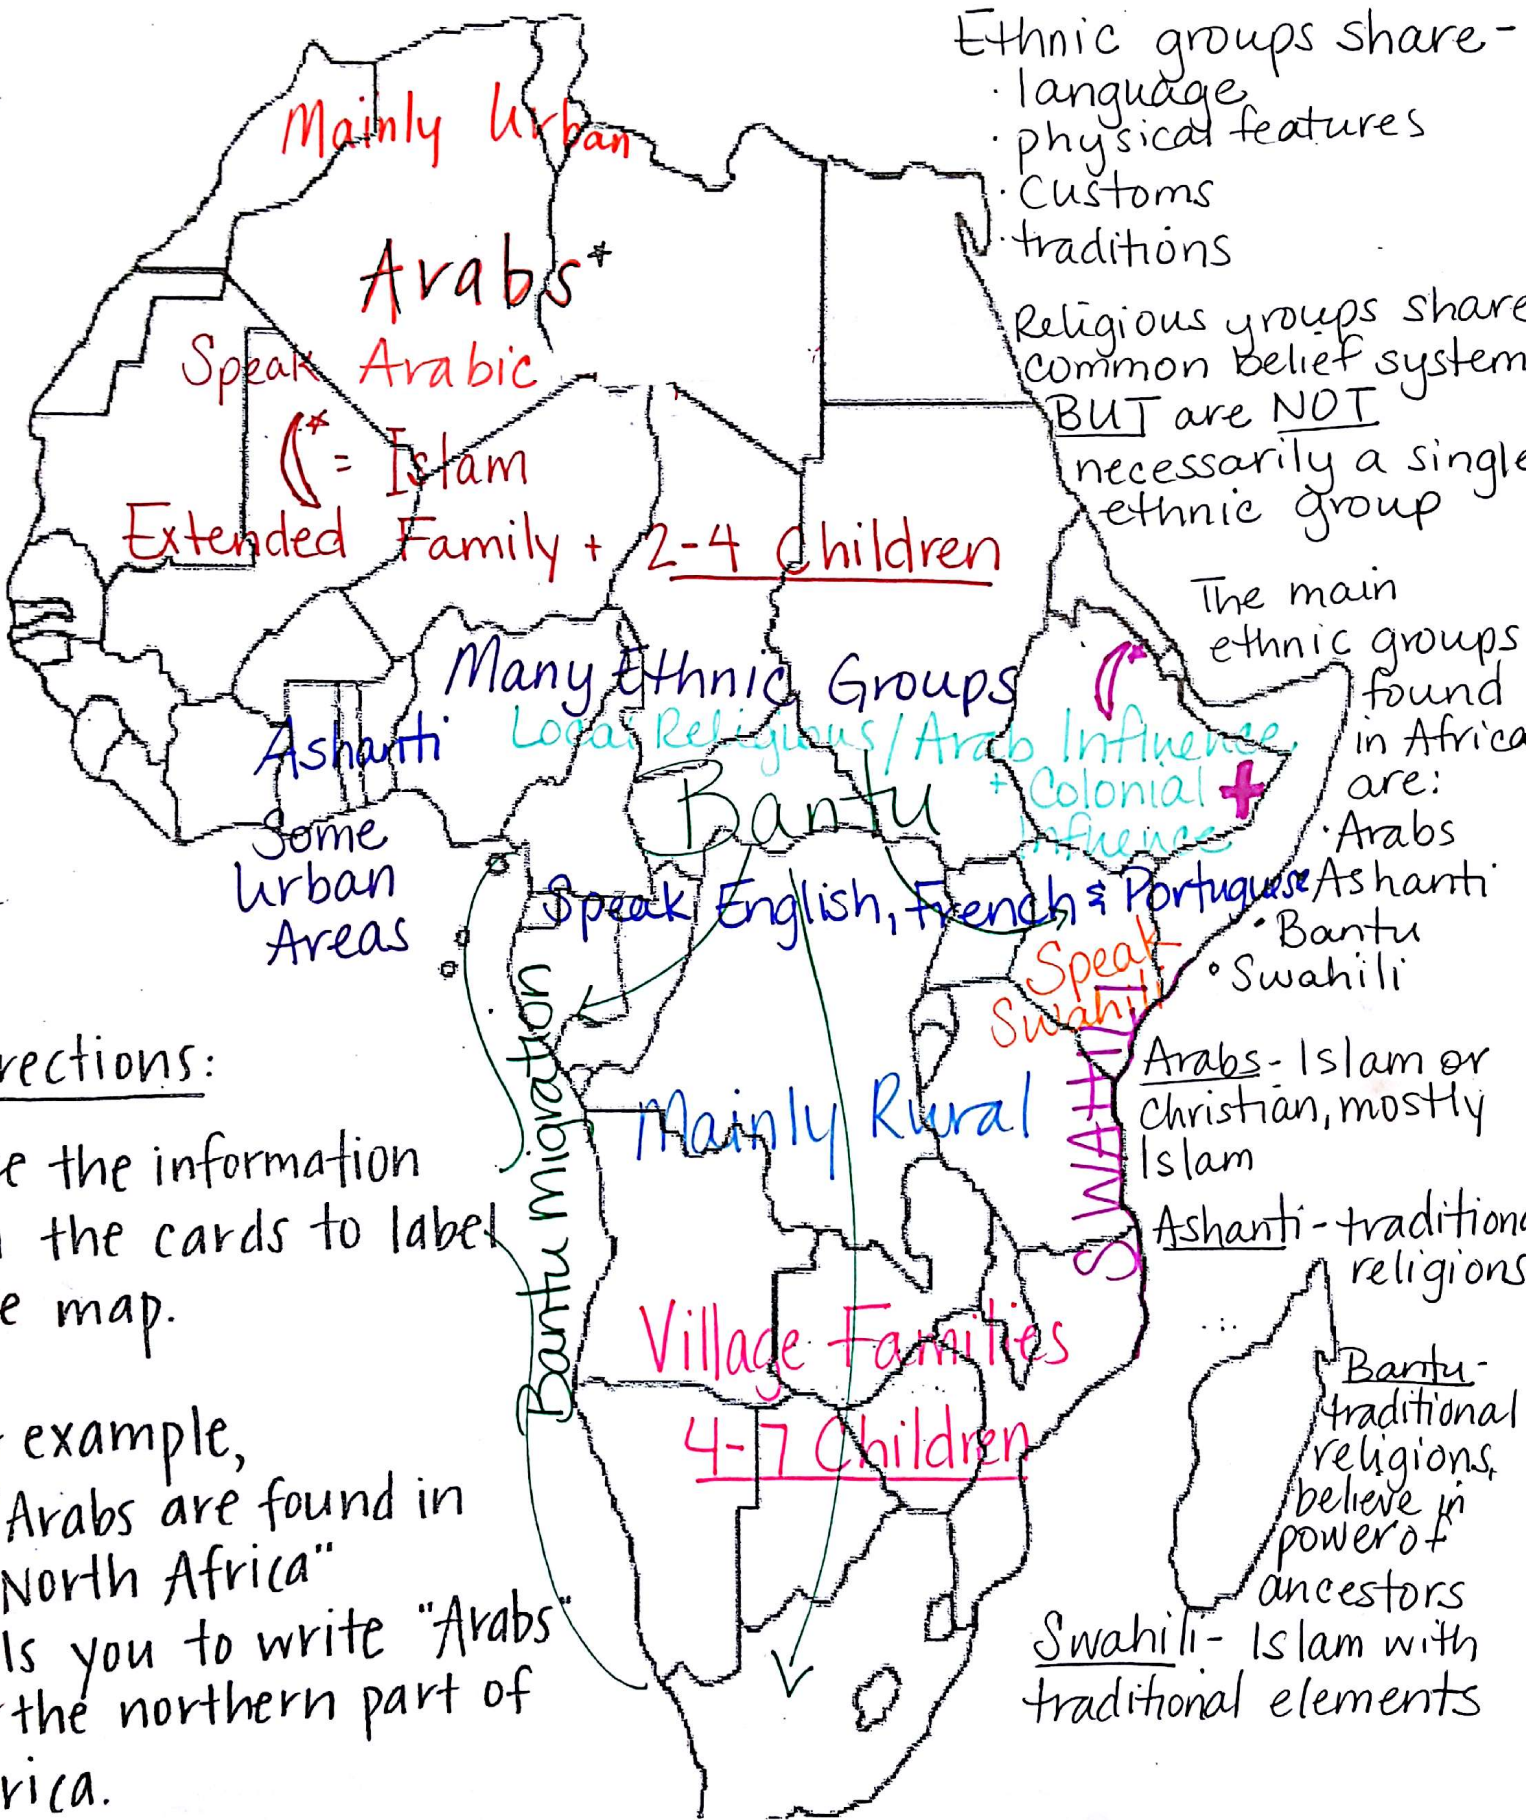 Mainly Urban
Arabs*
Speak Arabic
= Islam
Extended Family + 2-4 Children
Many Ethnic Groups
Ashanti
Local Religious/Arab Influence
+ Colonial
Influence
Bantu
Some
Urban
Areas
Speak English, French & Portuguese
Speak
Swahili
SWAHILI
Bantu migration
Mainly Rural
Village Families
4-7 Children
Ethnic groups share-
· language
· physical features
· Customs
· traditions
Religious groups share
common belief system
BUT are NOT
necessarily a single
ethnic group
The main
ethnic groups
found
in Africa
are:
· Arabs
Ashanti
· Bantu
· Swahili
Arabs- Islam or
Christian, mostly
Islam
Ashanti-traditiona
religions
Bantu-
traditional
religions,
believe in
power of
ancestors
Swahili- Islam with
traditional elements
rections:
e the information
the cards to label
e map.
example,
Arabs are found in
North Africa"
ls you to write "Arabs"
the northern part of
rica.